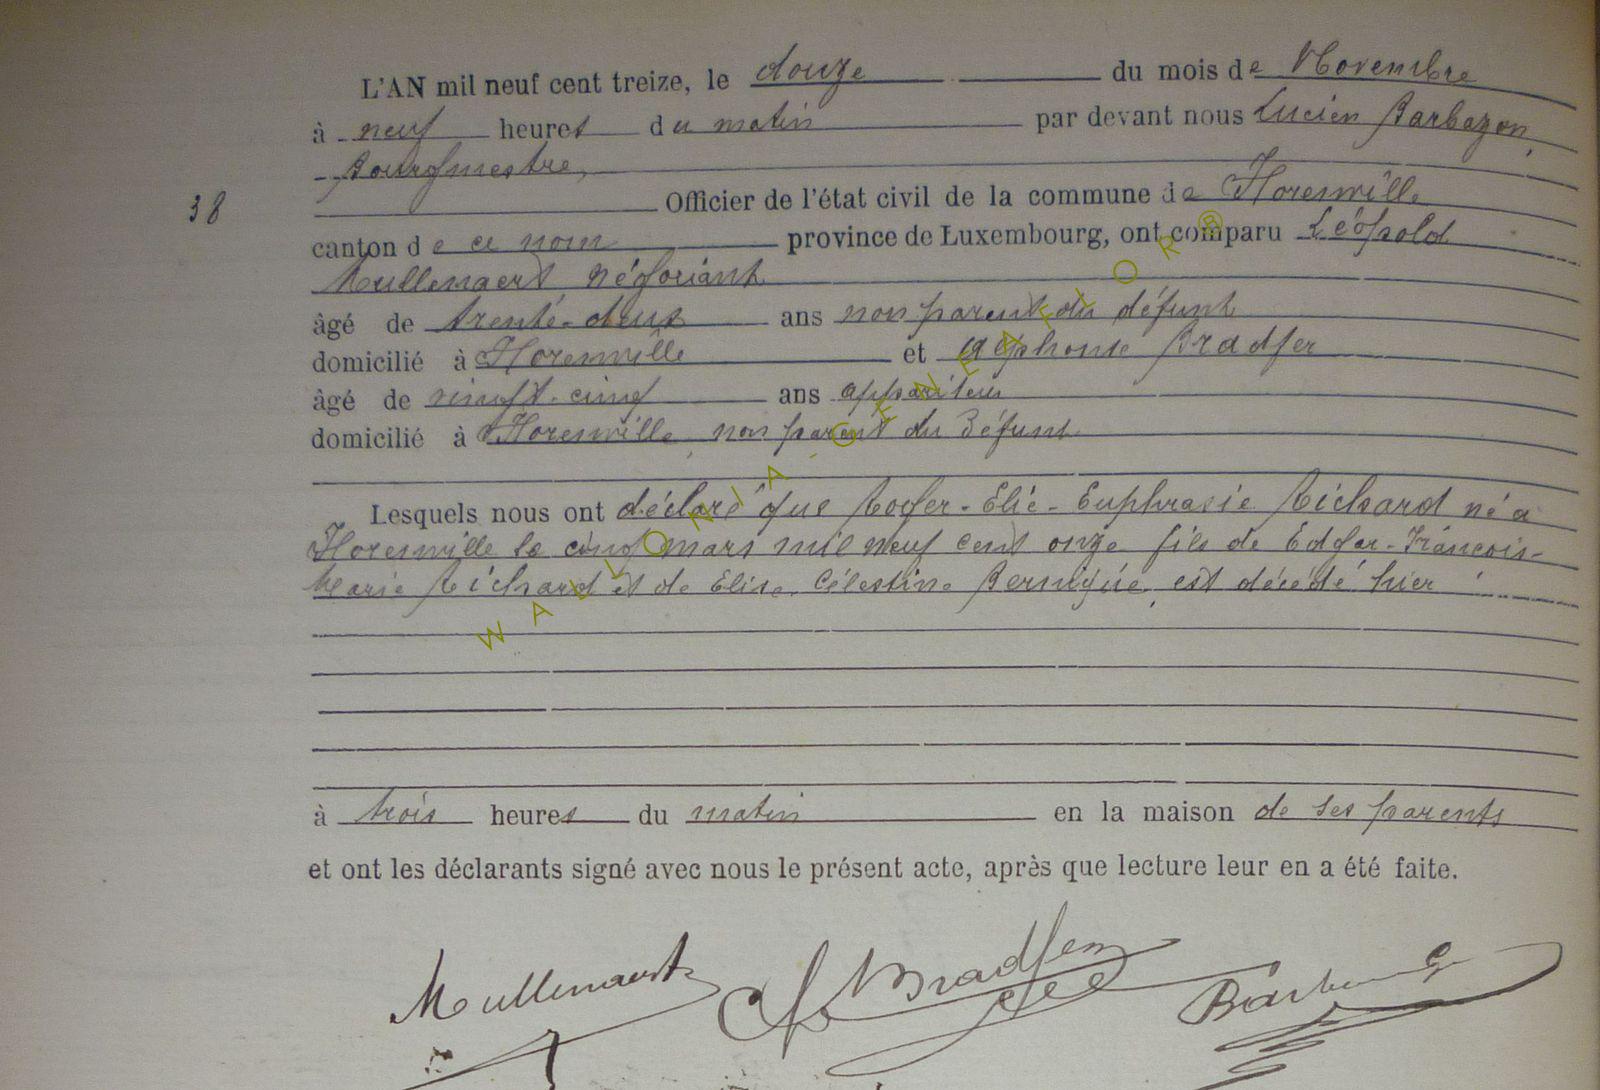 L'AN mil neuf cent treize, le douze du mois de Novembre
à neuf heures du matin par devant nous Lucien Barbazon,
Bourgmestre,
38
Officier de l'état civil de la commune de Florenville
canton de ce nom province de Luxembourg, ont comparu Léopold
Mullenaert négociant
âgé de trente-deux ans non parent du défunt
domicilié à Florenville et Alphonse Bradfer
âgé de vingt-cinq ans appariteur
domicilié à Florenville, non parent du défunt
Lesquels nous ont déclaré que Roger-Elie-Euphrasie Richard né à
Florenville le cinq mars mil neuf cent onze fils de Edgar-François-
Marie Richard et de Elise Célestine, est décédé hier
à trois heures du matin en la maison de ses parents
et ont les déclarants signé avec nous le présent acte, après que lecture leur en a été faite.
Mullenaert Bradfer
WALLONIA-GENEAFLOR®